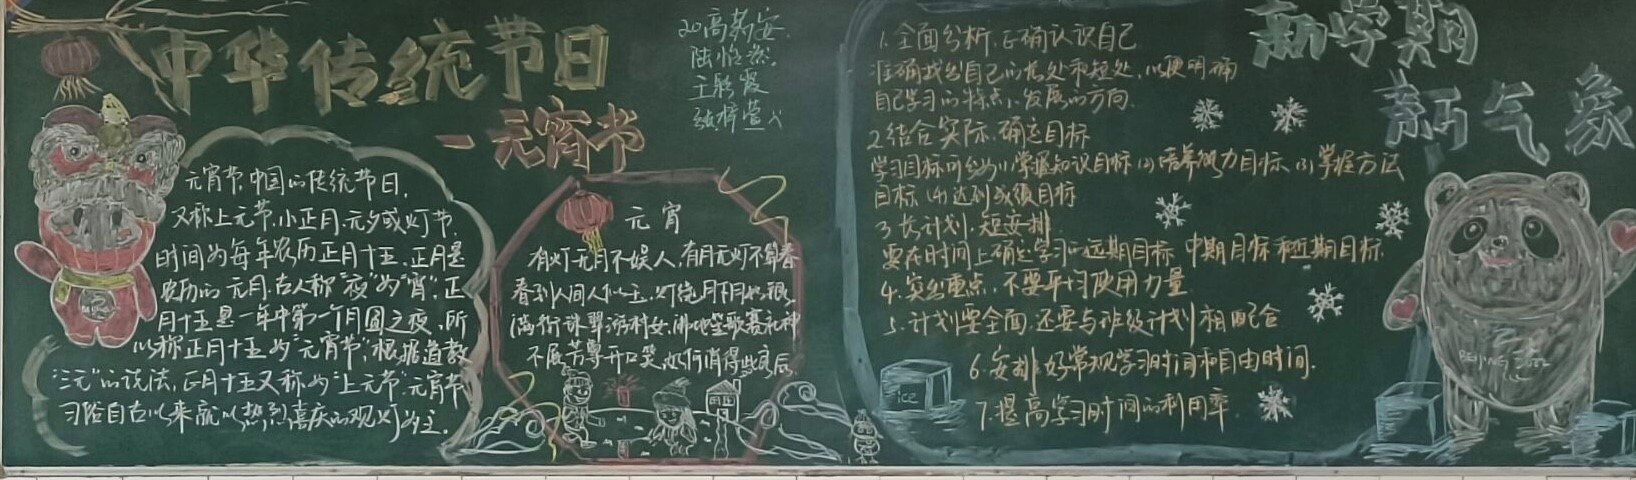 中华传统节日
一元宵节
20高药安
陆怡然
王
张梓萱
元宵节,中国的传统节日,
又称上元节,小正月、元夕或灯节,
时间为每年农历正月十五,正月是
农历的元月,古人称"夜"为"宵",正
月十五是一年中第一个月圆之夜,所
以称正月十五为"元宵节"。根据道教
"三元"的说法,正月十五又称为"上元节"元宵节
习俗自古以来就以热烈喜庆的观灯为主.
BEIJING
元宵
有灯无月不娱人,有月无灯不算春
春到人间人似玉,灯烧月下月如银
满街珠翠游村女,沸地笙歌赛社神
不展芳尊开口笑,如何消得此良辰
新学期
新气象
1.全面分析,正确认识自己
准确找出自己的长处和短处,以便明确
自己学习的特点、发展的方向.
2.结合实际,确定目标
学习目标可分为(1)掌握知识目标(2)培养能力目标(3)掌握方法
目标(4)达到成绩目标
3.长计划,短安排
要在时间上确定学习的远期目标,中期目标和近期目标.
4.突出重点,不要平均使用力量
5.计划要全面,还要与班级计划相配合
6.安排好常规学习时间和自由时间.
7.提高学习时间的利用率.
ice
BEIJING 2022